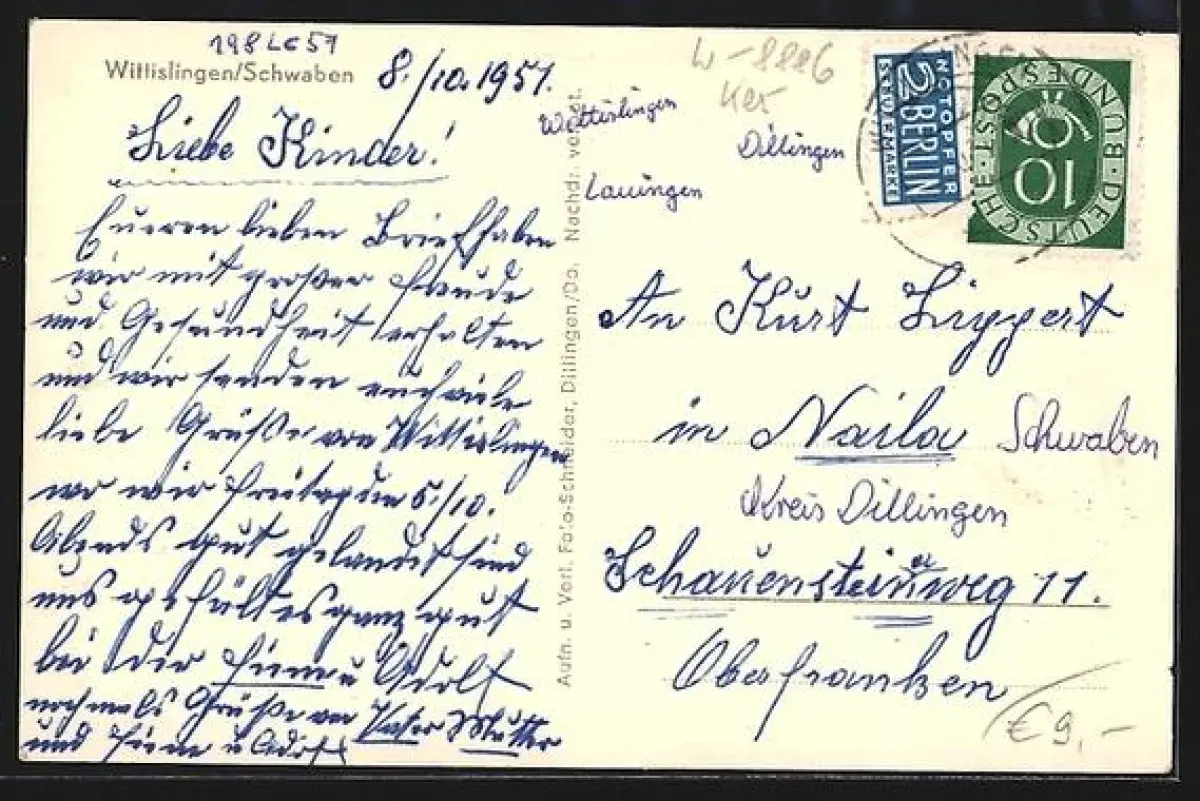 198 LC 57
Wittislingen/Schwaben
8./10.1951.
Liebe Kinder!
Eueren lieben Brief haben
wir mit großer Freude
und Gesundheit erhalten
und wir senden euch viele
liebe Grüße von Wittislingen
wo wir Freitag den 5./10.
Abends gut gelandet sind
uns gefällt es ganz gut
bei der u Adolf
nochmals Grüße von Vater Mutter
und u Adolf
Aufn. u. Verl. Foto-Schneider, Dillingen/Do. Nachdr. verbot.
W-8886
Wittislingen
Dillingen
Lauingen
NOTOPFER
2 BERLIN
STEUERMARKE
DEUTSCHE BUNDESPOST
10
An Kurt Lippert
in Naila Schwaben
Kreis Dillingen
Schauensteinerweg 11.
Oberfranken
€ 9,-